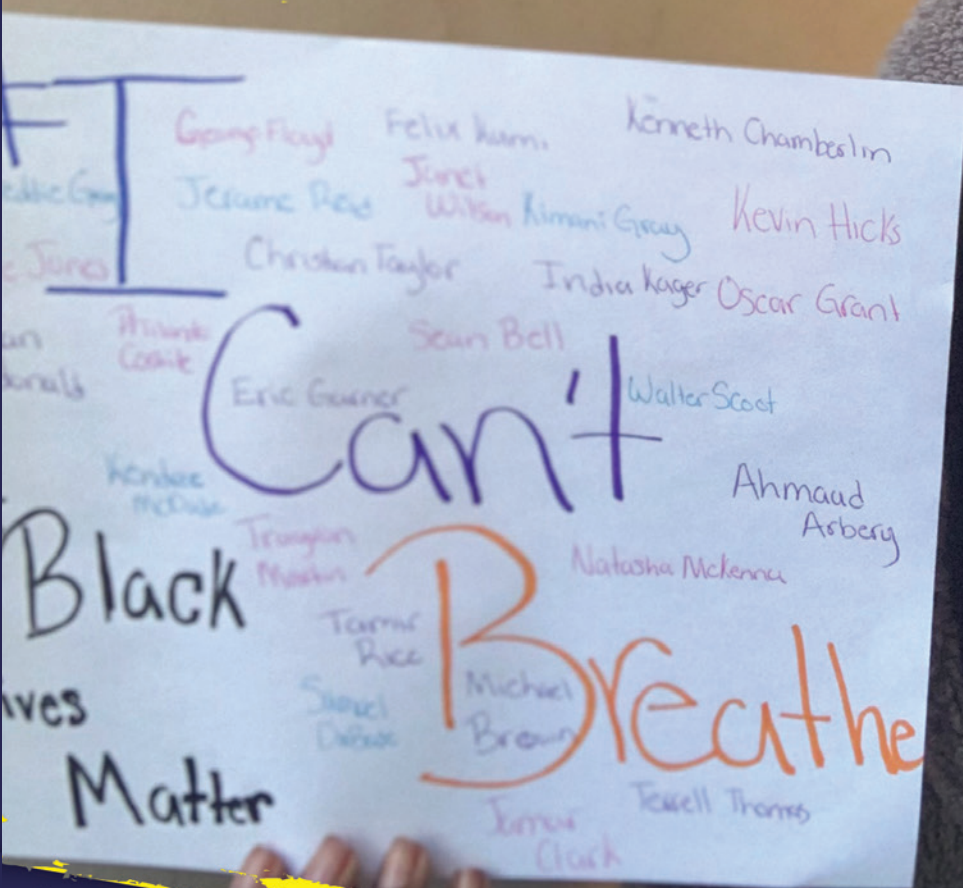 I
George Floyd
Felix Kum.
Kenneth Chamberlin
Jerame Reid
Janet
Wilson
Kimani Gray
Kevin Hicks
Jones
Christian Taylor
India Kager
Oscar Grant
Philando
Sean Bell
Can't
Eric Garner
Walter Scoot
Ahmaud
Arbery
Black
Trayvon
Martin
Natasha Mckenna
Tamir
Rice
Breathe
Michael
Brown
Samuel
Matter
Terrell Thomas
Jamar
Clark